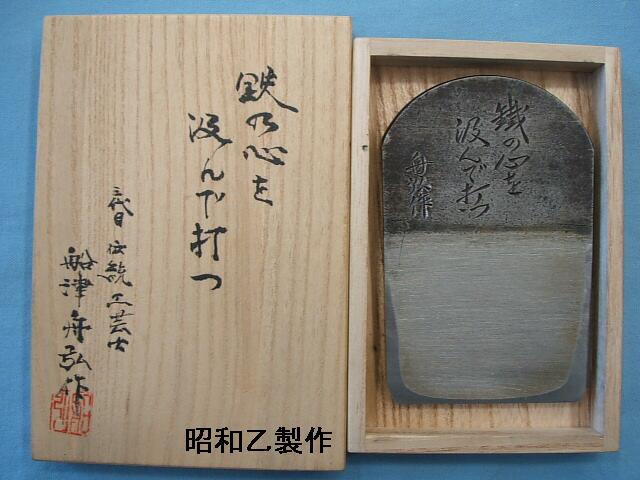 鉄の心を
汲んで打つ
三代目 伝統工芸士
船津舟弘作
鐵の心を
汲んで打つ
舟弘作
昭和乙製作